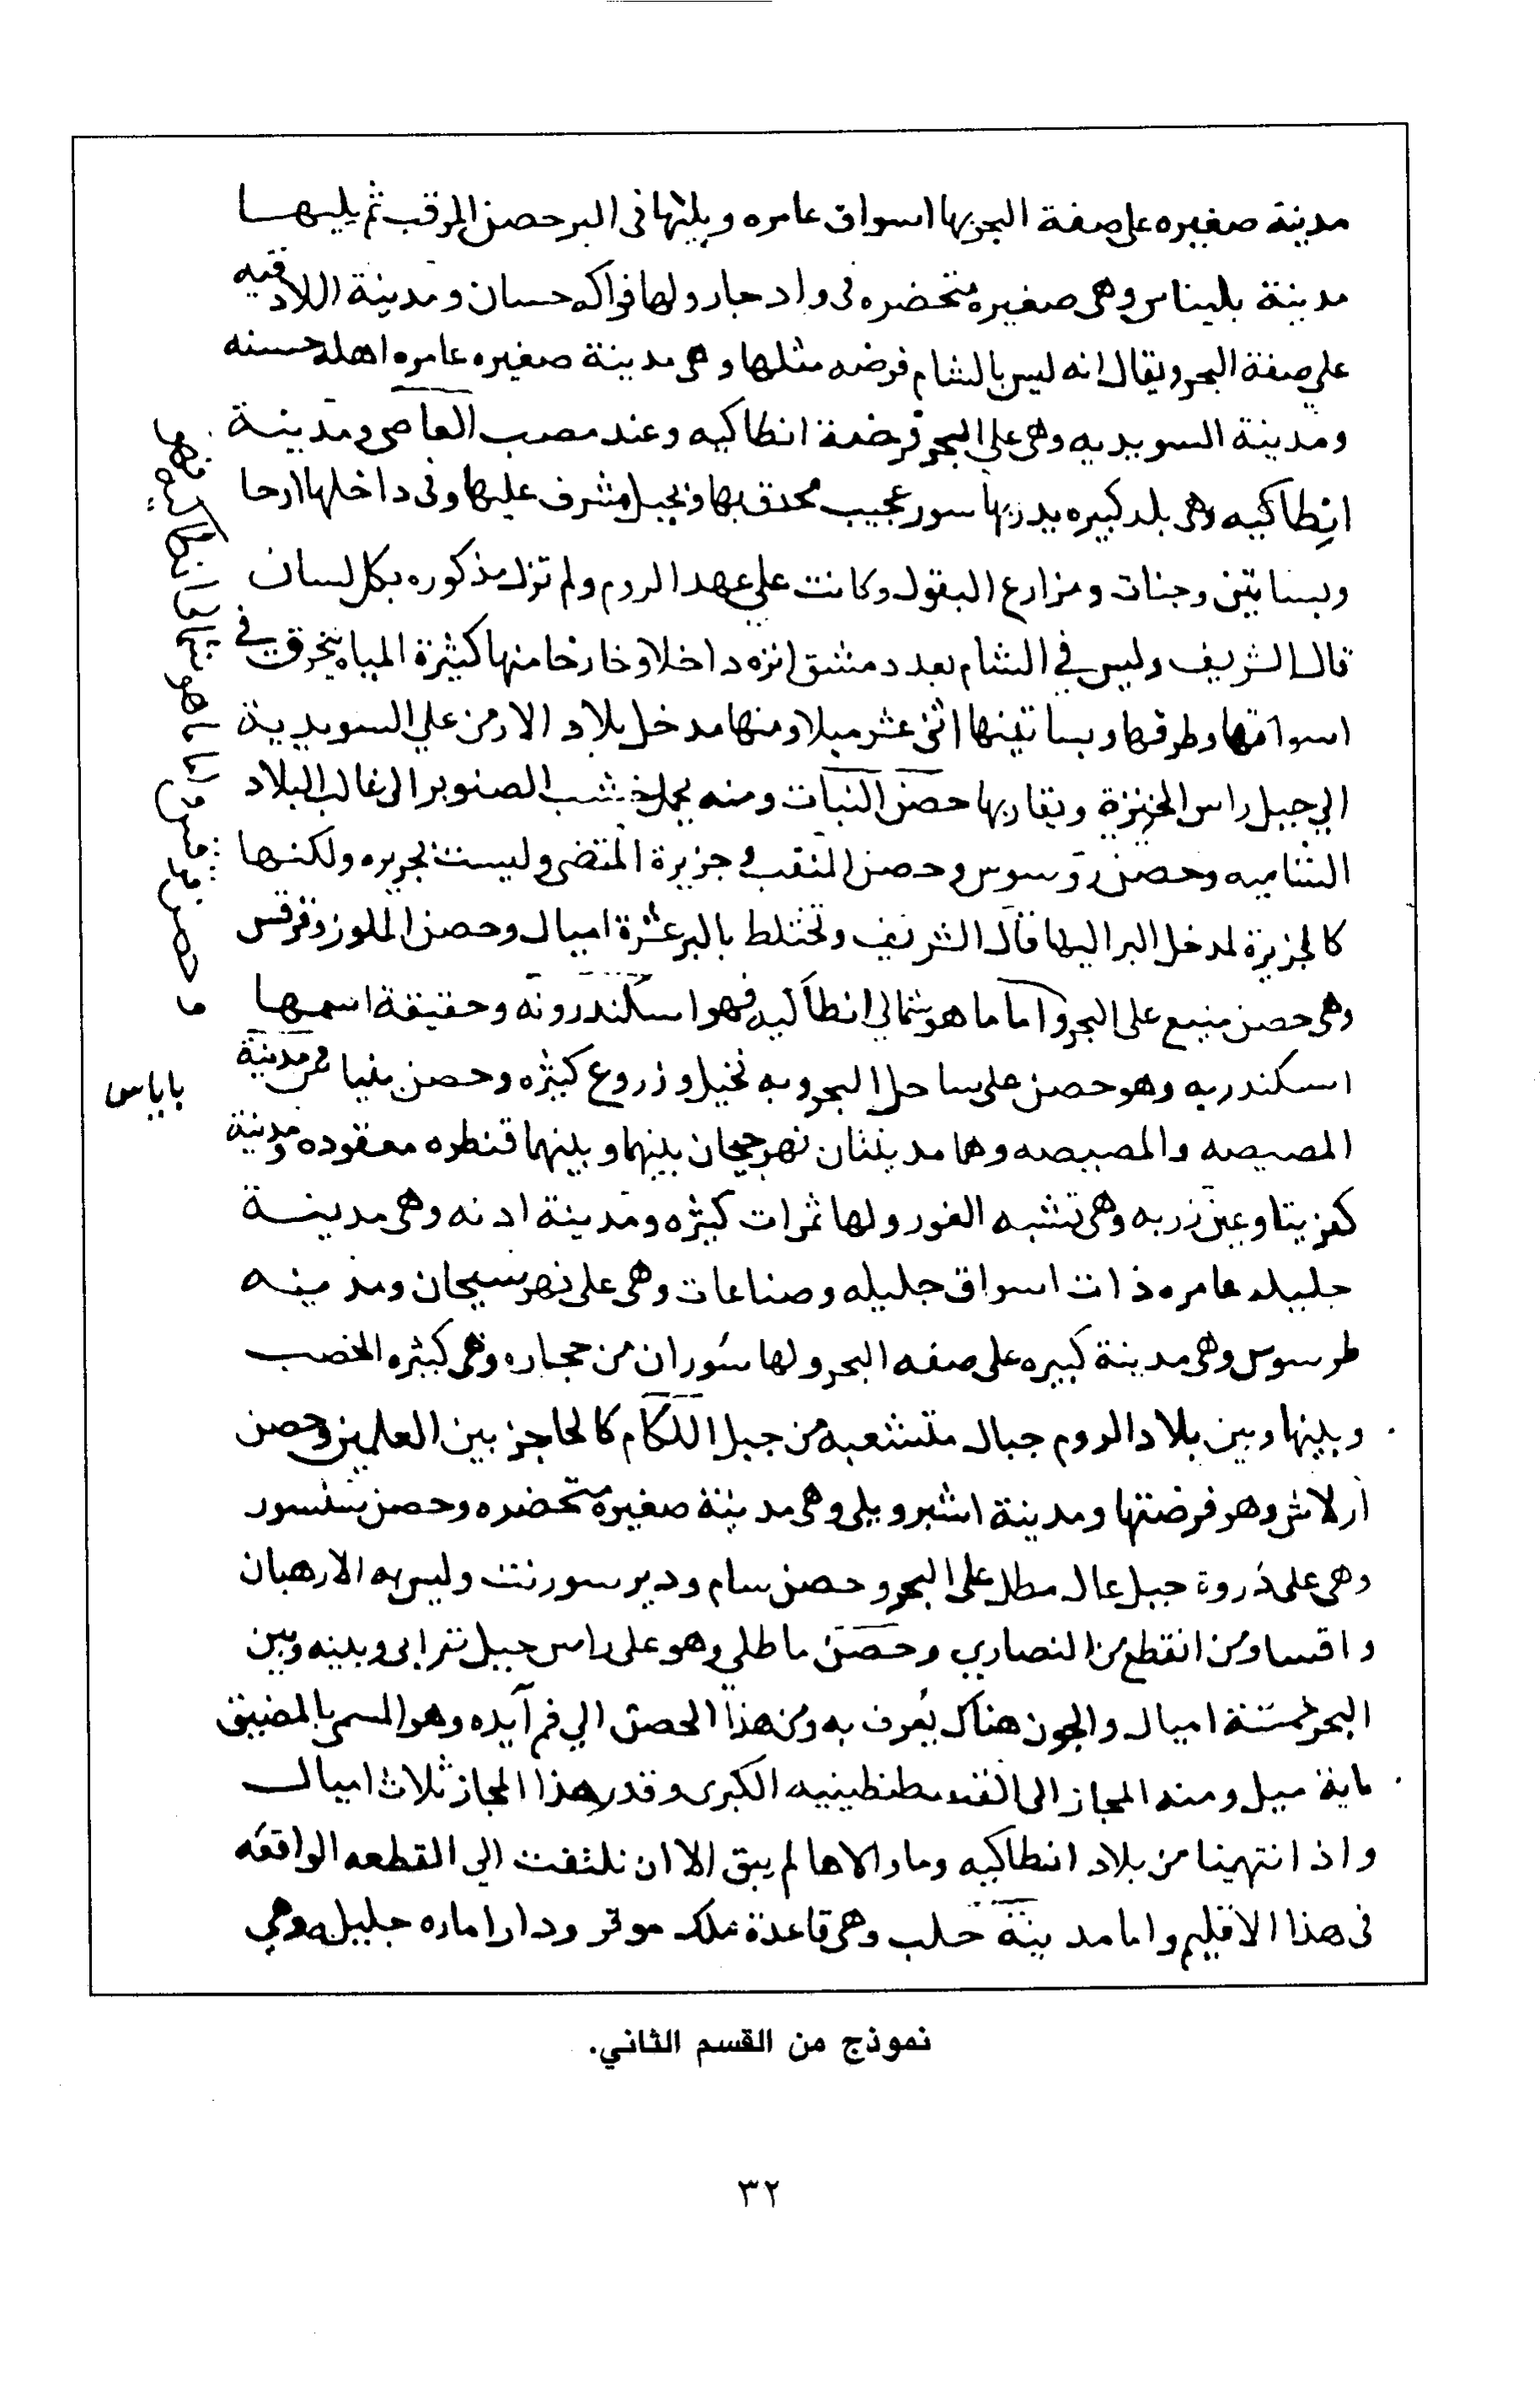 مدينة صغيره على ضفة البحر بها اسواق عامره ويليها فى البر حصن المرقب ثم يليها
مدينة بليناس وهى صغيره متحضره فى واد جار ولها فواكه حسان ومدينة اللادقيه
علي ضفة البحر ويقال انه ليس بالشام فرضه مثلها وهى مدينة صغيره عامره اهله حسنه
ومدينة السويديه وهى علي البحر فرضة انطاكيه وعند مصب العاصى ومدينة
انطاكيه وهى بلد كبيره يدربها سور عجيب محدق بها وبجبل مشرف عليها وفى داخلها ارحا
وبساتين وجنات ومزارع البقول وكانت علي عهد الروم ولم تزل مذكوره بكل لسان
قال الشريف وليس في الشام بعد دمشق انزه داخلا وخارجا منها كثيرة المياه يخرق في
اسواقها وطرقها وبساتينها اثنى عشر ميلا ومنها مدخل بلاد الارمن علي السويدية
الي جبل راس الخنزرة ويقاربها حصن النبات ومنه يحمل خشب الصنوبر الى غالب البلاد
الشاميه وحصن روسوس وحصن المثقب و جزيرة المتضى وليست بجزيره ولكنها
كالجزيرة لمدخل البر اليها قال الشريف وتختلط بالبر عشرة اميال وحصن الملوز وقرقس
وهى حصن منيع على البحر واما ما هو شمالي انطاكيه فهو اسكندرونه وحقيقة اسمها
اسكندريه وهو حصن على ساحل البحر وبه نخيل وزروع كثيره وحصن بنياس ومدينة
المصيصه والمصيصه وهما مدينتان نهر جيحان بينهما وبينهما قنطره معقوده ومدينة
كفربيتا وعين زربه وهى تشبه الغور ولها ثمرات كثيره ومدينة ادنه وهى مدينة
جليله عامره ذات اسواق جليله وصناعات وهى على نهر سيحان ومدينه
طرسوس وهى مدينة كبيره على ضفه البحر ولها سوران من حجاره وهى كثيره الخصب
وبينها وبين بلاد الروم جبال متشعبه من جبل اللكام كالحاجز بين العلمين وحصن
ارلاش وهو فرضتها ومدينة اشبرويلى وهى مدينة صغيره متحضره وحصن سنسور
وهى على ذروة جبل عال مطل على البحر وحصن سام ودير سورنت وليس به الا رهبان
واقسا ومن انقطع من النصاري وحصن ماطلي وهو على راس جبل ترابى وبينه وبين
البحر خمسة اميال والجون هناك يعرف به ومن هذا الحصن الي فم آبده وهو المسمى بالمضيق
ماية ميل ومنه المجاز الى القسطنطينيه الكبرى وقدر هذا المجاز ثلاث اميال
واذ انتهينا من بلاد انطاكيه وما والاها لم يبق الا ان نلتفت الي القطعه الواقعه
فى هذا الاقليم واما مدينة حلب وهى قاعدة ملك موقر ودار اماره جليله وهي
ما هو شمالى انطاكيه
باياس
نموذج من القسم الثاني.
٣٢